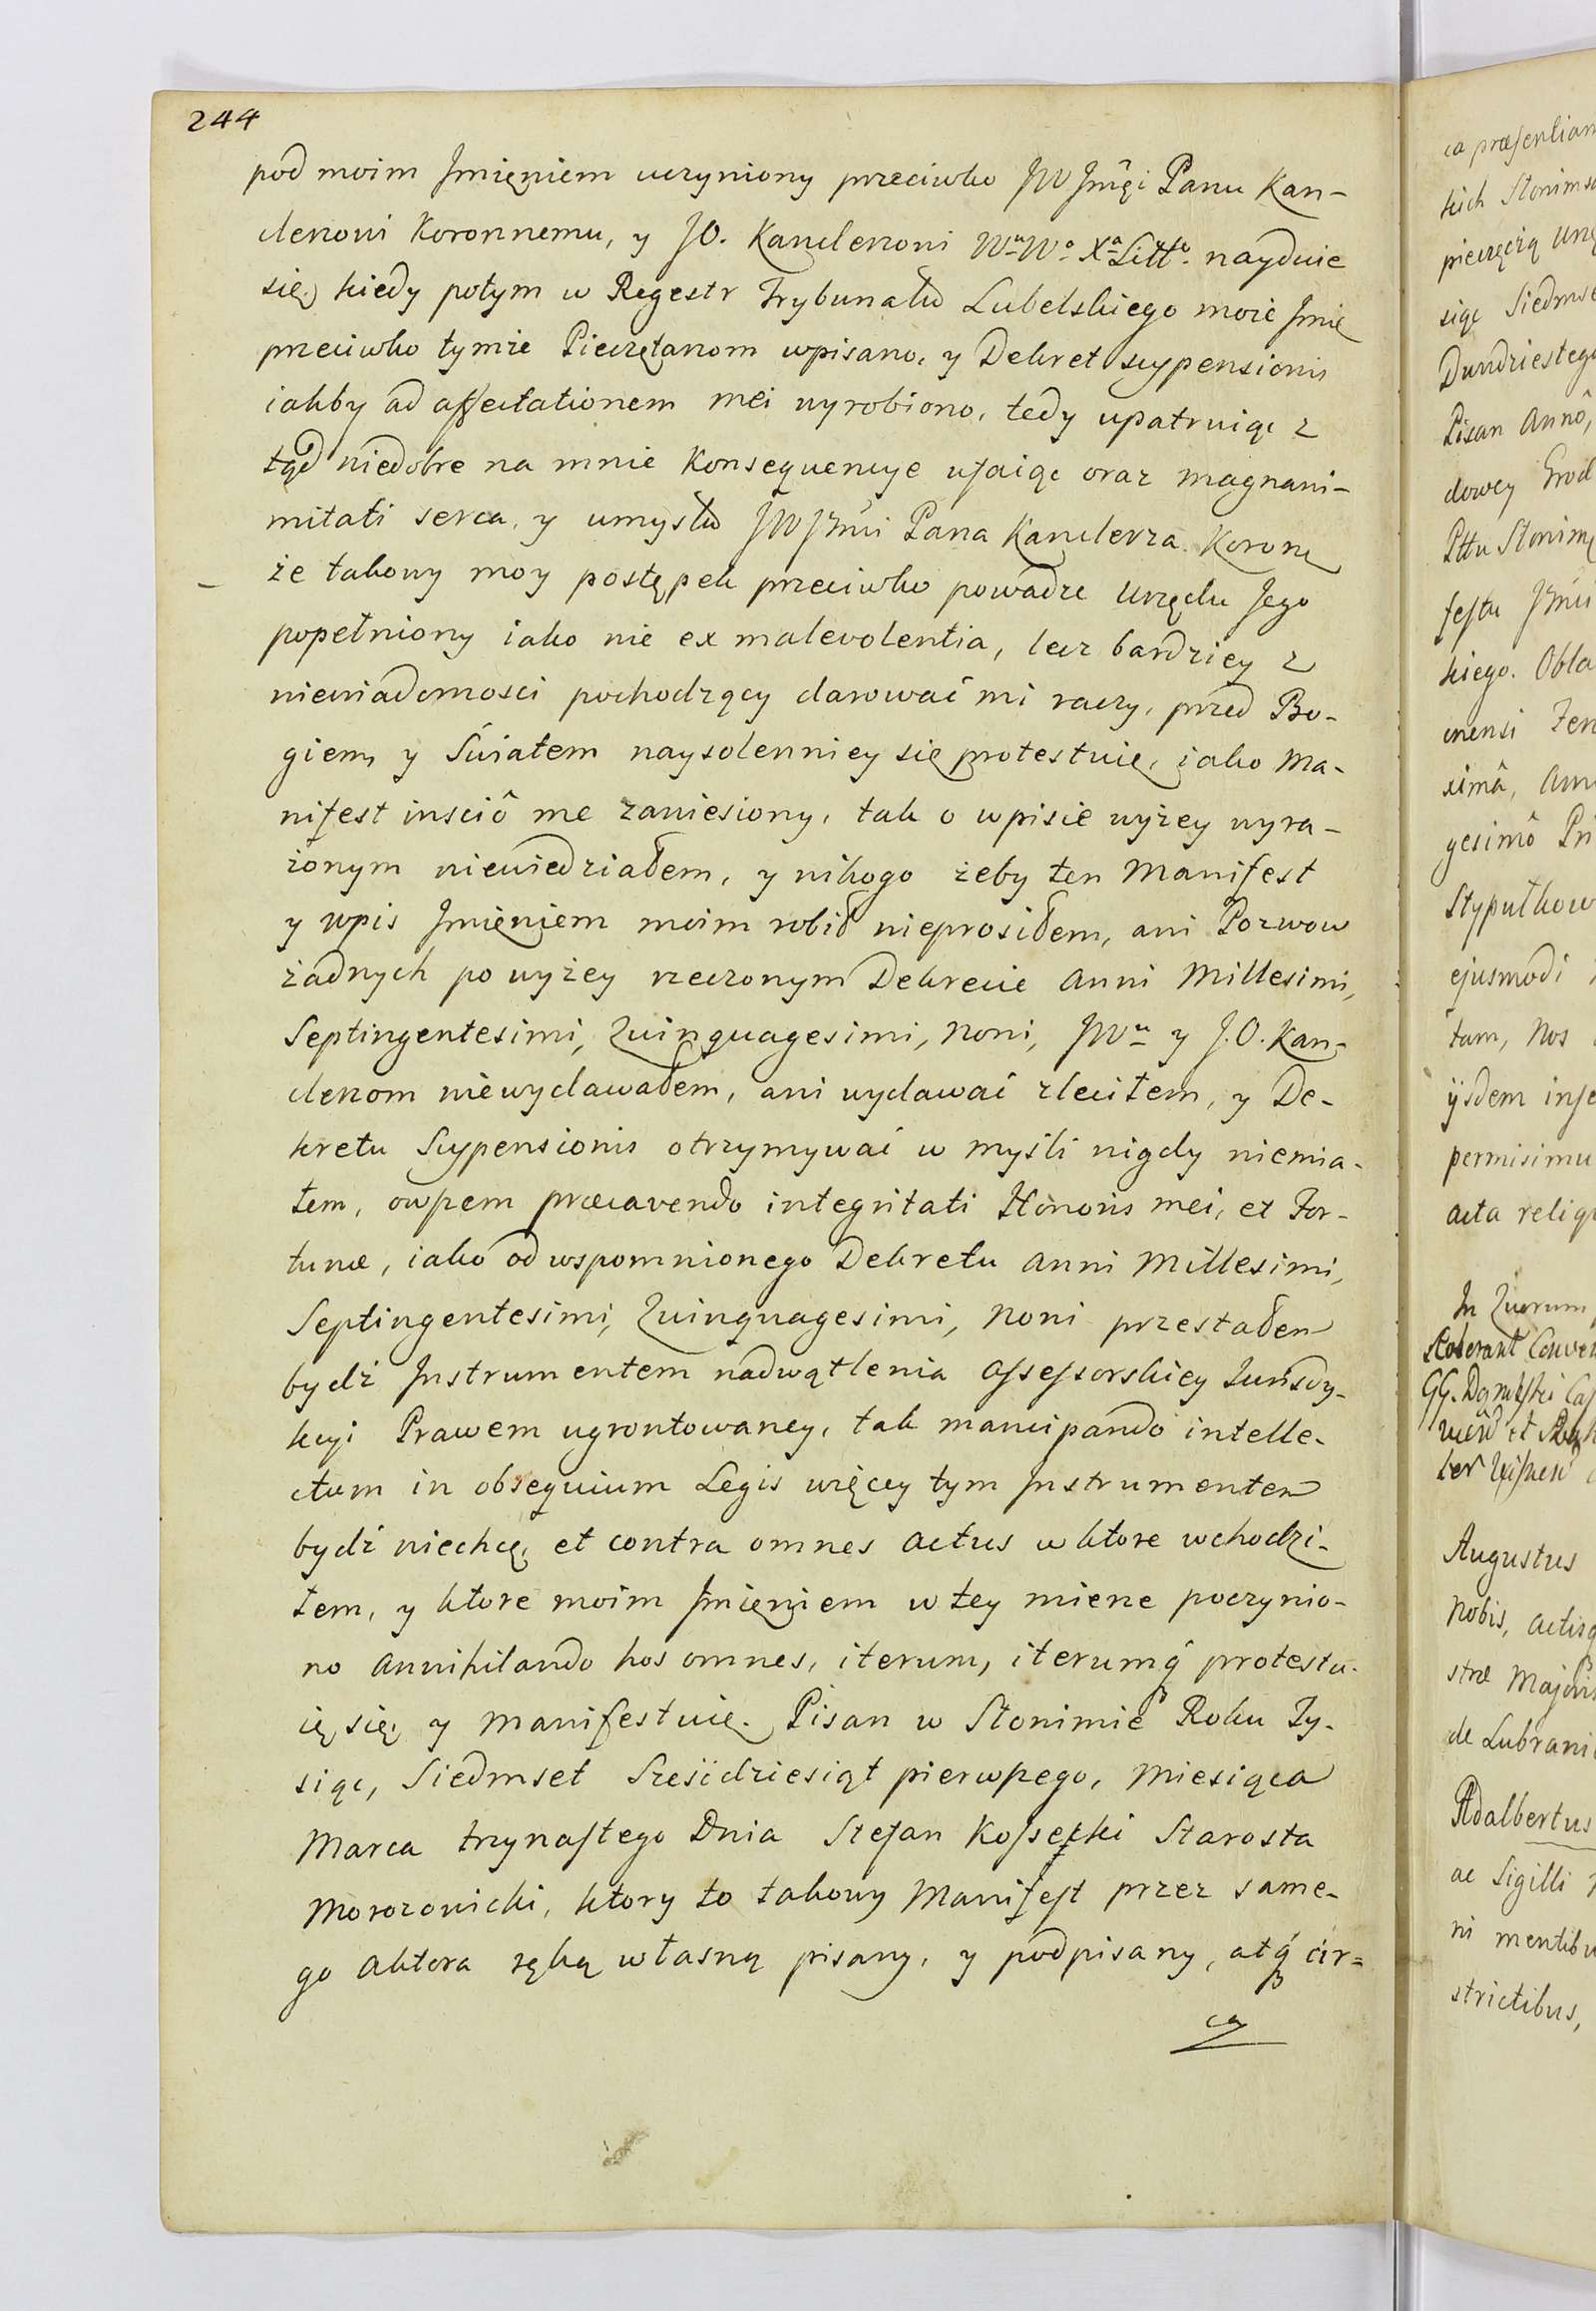 244
pod moim Jmięniem uczyniony przeciwko JW Jmći Panu Kan-
clerzowi Koronnemu, y JO. Kanclerzowi Wu Wo Xa Litto nayduie
się, kiedy potym w Regestr Trybunału Lubelskiego moie Jmie
przeciwko tymże Pieczętarzom wpisano, y Dekret suspensionis
iakby ad affectationem mei wyrobiono, tedy upatruiąc z
tąd niedobre na mnie Konsequencye ufaiąc oraz magnani-
mitati serca, y umysłu JW Jmći Pana Kanclerza Koronn
że takowy moy postępek przeciwko powadze Urzędu Jego
popełniony iako nie ex malevolentia, lecz bardziey z
niewiadomosci pochodzący darować mi raczy, przed Bo-
giem, y Światem naysolenniey się protestuię, iako Ma-
nifest insciô me zaniesiony, tak o wpisie wyżey wyra-
żonym niewiedziałem, y nikogo żeby ten Manifest
y wpis Jmięniem moim robił nieprosiłem, ani Pozwow
żadnych po wyżey rzeczonym Dekrecie Anni Millesimi,
Septingentesimi, Quinquagesimi, Noni, JWu y J.O. Kan-
clerzom niewydawałem, ani wydawać zleciłem, y De-
kretu Suspensionis otrzymywać w myśli nigdy niemia-
łem, owszem præcavendo integritati Honoris mei, et For-
tunæ, iako od wspomnionego Dekretu Anni Millesimi,
Septingentesimi, Quinquagesimi, Noni przestałem
bydź Jnstrumentem nadwątlenia Assessorskiey Jurisdy-
kcyi Prawem ugrontowaney, tak mancipando intelle-
ctum in obsequium Legis więcey tym Jnstrumentem
bydź niechcę, et contra omnes Actus w ktore wchodzi-
łem, y ktore moim Jmięniem w tey mierze poczynio-
no Annihilando hos omnes, iterum, iterumq́ protestu-
ię się, y Manifestuię. Pisan w Słonimie Roku Ty-
siąc, Siedmset Sześćdziesiąt pierwszego, Miesiąca
Marca trzynastego Dnia Stefan Kossecki Starosta
Morozowicki, ktory to takowy Manifest przez same-
go Aktora ręką własną pisany, y podpisany, atq́ cir=
ca
ca præsentian
kich Słonimsk
pieczęcią Urzę
siąc Siedmse
Dwudziestego
Pisan Annô,
dowey Grod
Pttu Słonim
festu Jmći
kiego. Obla
nensi Fer
ximâ, Ann
gesimô Pri
Stypułkow
ejusmodi
tum, Nos
ijsdem inse
permisimu
acta reliq
In Quorum
Augustus
Nobis, Actisq
stræ Majoris
de Lubrani
Adalbertus
ac Sigilli
ni mentibu
strictibus,